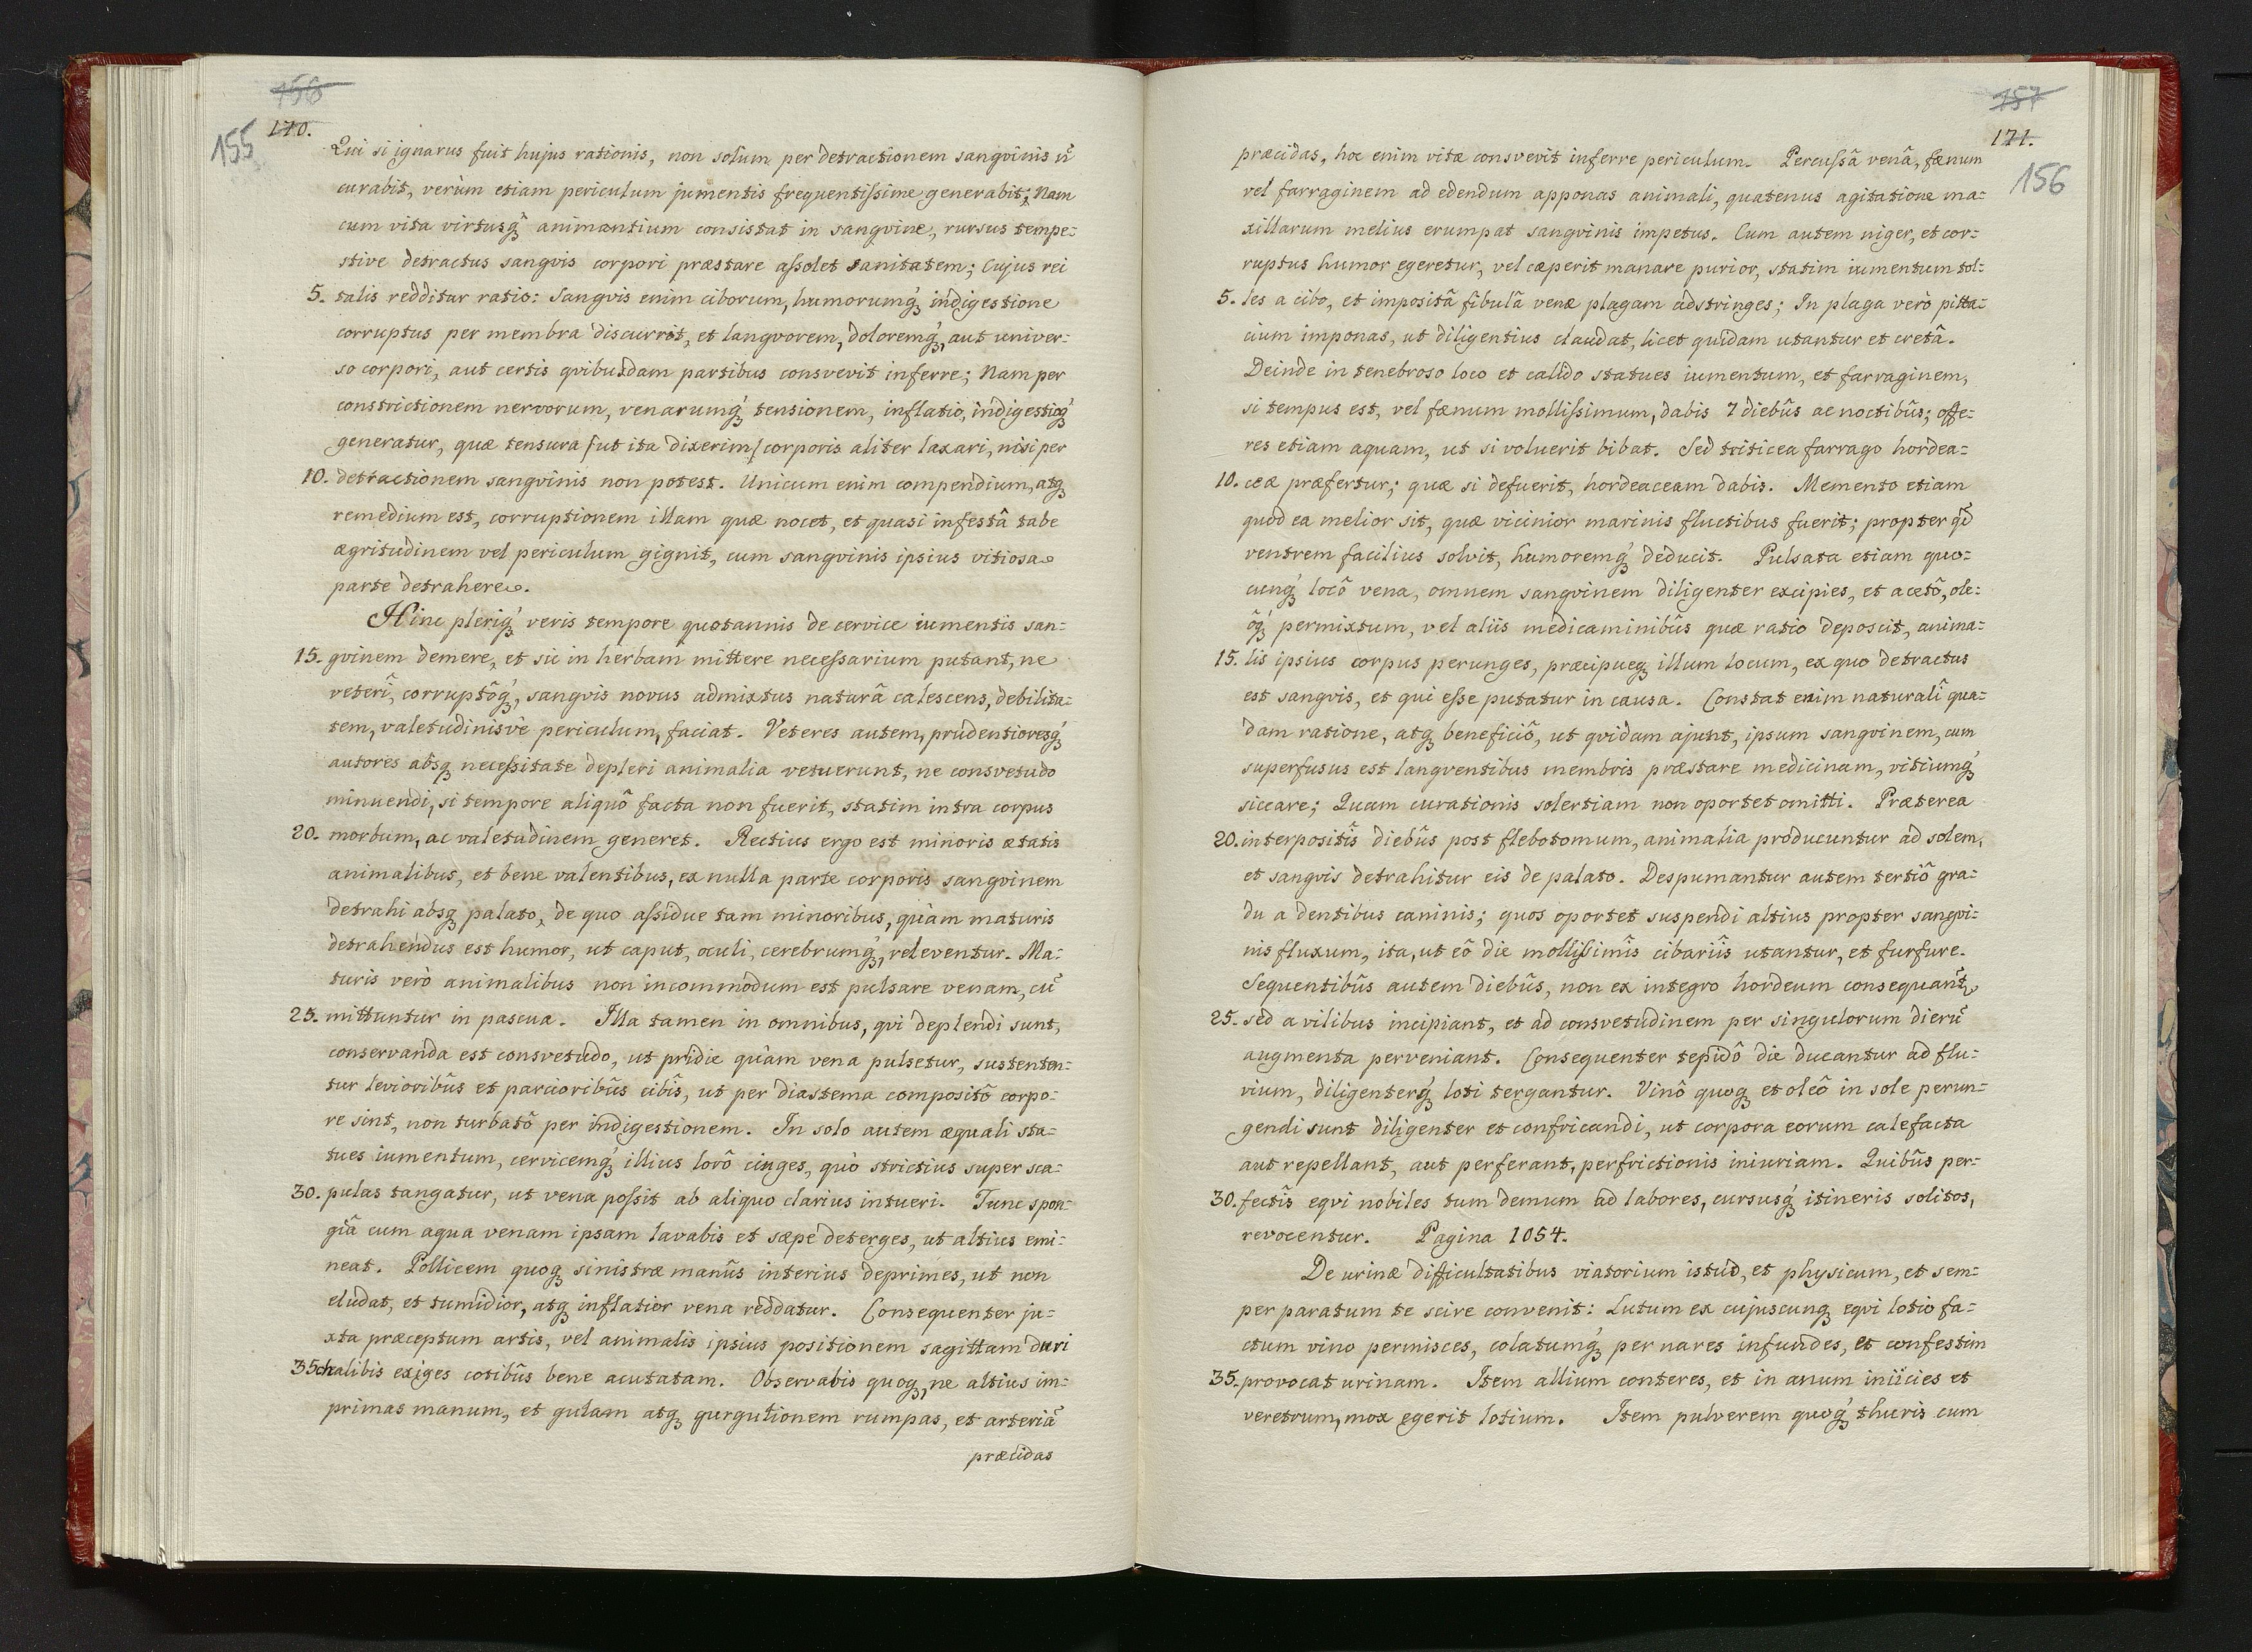 156
170.
155
Qui si ignarus fuit hujus rationis, non solùm per detractionem sangvinis ñ
curabit, verùm etiam periculum jumentis frequentiſsime generabit; Nam
cum vita virtusq́ꝫ animantium consistat in sangvine, rursus tempe:
stive detractus sangvis corpori præstare aſsolet sanitatem; Cujus rei
5. talis redditur ratio: Sangvis enim ciborum, humorumq́ꝫ indigestione
corruptus per membra discurrit, et langvorem, doloremq́ꝫ, aut univer:
so corpori, aut certis qvibusdam partibus consvevit inferre; Nam per
constrictionem nervorum, venarumq́ꝫ tensionem, inflatio, indigestioq́ꝫ
generatur, quæ tensura /ut ita dixerim/ corporis aliter laxari, nisi per
10. detractionem sangvinis non potest. Unicum enim compendium, atqꝫ
remedium est, corruptionem illam quæ nocet, et quasi infestâ tabe
ægritudinem vel periculum gignit, cum sangvinis ipsius vitiosa
parte detrahere.
Hinc pleriq́ꝫ veris tempore quotannis de cervice iumentis san:
15. gvinem demere, et sic in herbam mittere neceſsarium putant, ne
veterî, corruptôq́ꝫ, sangvis novus admixtus naturâ calescens, debilita:
tem, valetudinisvè periculum, faciat. Veteres autem, prudentioresq́ꝫ
autores absqꝫ neceſsitate depleri animalia vetuerunt, ne consvetudo
minuendi, si tempore aliquô facta non fuerit, statim intra corpus
20. morbum, ac valetudinem generet. Rectius ergo est minoris ætatis
animalibus, et bene valentibus, ex nulla parte corporis sangvinem
detrahi absqꝫ palato, de quo aſsidue tam minoribus, quàm maturis
detrahendus est humor, ut caput, oculi, cerebrumq́ꝫ, releventur. Ma:
turis verò animalibus non incommodum est pulsare venam, cũ
25. mittuntur in pascua. Illa tamen in omnibus, qvi deplendi sunt,
conservanda est consvetudo, ut pridie quàm vena pulsetur, sustenten:
tur levioribûs et parcioribûs cibîs, ut per diastema compositô corpo:
re sint, non turbatô per indigestionem. In solo autem æquali sta:
tues iumentum, cervicemq́ꝫ illius lorô cinges, quò strictius super sca:
30. pulas tangatur, ut vena poſsit ab aliquo clarius intueri. Tunc spon:
giâ cum aqua venam ipsam lavabis et sæpe deterges, ut altius emi:
neat. Pollicem quoqꝫ sinistræ manûs interius deprimes, ut non
eludat, et tumidior, atqꝫ inflatior vena reddatur. Consequenter ju:
xta præceptum artis, vel animalis ipsius positionem sagittam duri
35. chalibis exiges cotibûs bene acutatam. Observabis quoqꝫ, ne altius im:
primas manum, et gulam atqꝫ gurgulionem rumpas, et arteriã
præcidas
157
171.
156
præcidas, hoc enim vitæ consvevit inferre periculum. Percuſsâ venâ, fænum
vel farraginem ad edendum apponas animali, quatenus agitatione ma:
xillarum melius erumpat sangvinis impetus. Cum autem niger, et cor:
ruptus humor egeretur, vel cæperit manare purior, statim iumentum tol:
5. les a cibo, et impositâ fibulâ venæ plagam adstringes; In plaga verò pitta:
cium imponas, ut diligentius claudat, licet quidam utantur et cretâ.
Deinde in tenebroso loco et calido statues iumentum, et farraginem,
si tempus est, vel fænum molliſsimum, dabis 7 diebûs ac noctibûs; offe:
res etiam aquam, ut si voluerit bibat. Sed triticea farrago hordea:
10. ceæ præfertur; quæ si defuerit, hordeaceam dabis. Memento etiam
quod ea melior sit, quæ vicinior marinis fluctibus fuerit; propter qđ
ventrem facilius solvit, humoremq́ꝫ deducit. Pulsata etiam quo:
cunq́ꝫ locô vena, omnem sangvinem diligenter excipies, et acetô, ole:
ôq́ꝫ permixtum, vel aliis medicaminibûs quæ ratio deposcit, anima:
15. lis ipsius corpus perunges, præcipueqꝫ illum locum, ex quo detractus
est sangvis, et qui eſse putatur in causa. Constat enim naturalî qua:
dam ratione, atqꝫ beneficiô, ut qvidam ajunt, ipsum sangvinem, cum
superfusus est langventibus membris præstare medicinam, vitiumq́ꝫ
siccare; Quam curationis solertiam non oportet omitti. Præterea
20. interpositîs diebûs post flebotomum, animalia producuntur ad solem,
et sangvis detrahitur eis de palato. Despumantur autem tertiô gra:
du a dentibus caninis; quos oportet suspendi altius propter sangvi:
nis fluxum, ita, ut eô die molliſsimîs cibariîs utantur, et furfure.
Sequentibûs autem diebûs, non ex integro hordeum consequant᷑,
25. sed a vilibus incipiant, et ad consvetudinem per singulorum dierũ
augmenta perveniant. Consequenter tepidô die ducantur ad flu:
vium, diligenterq́ꝫ loti tergantur. Vinô quoqꝫ et oleô in sole perun:
gendi sunt diligenter et confricandi, ut corpora eorum calefacta
aut repellant, aut perferant, perfrictionis iniuriam. Quibûs per:
30. fectîs eqvi nobiles tum demum ad labores, cursusq́ꝫ itineris solitos,
revocentur. Pagina 1054.
De urinæ difficultatibus viatorium istud, et physicum, et sem:
per paratum te scire convenit: Lutum ex cujuscunqꝫ eqvi lotio fa:
ctum vino permisces, colatumq́ꝫ per nares infundes, et confestim
35. provocat urinam. Item allium conteres, et in anum iniicies et
veretrum, mox egerit lotium. Item pulverem quoq́ꝫ thuris cum